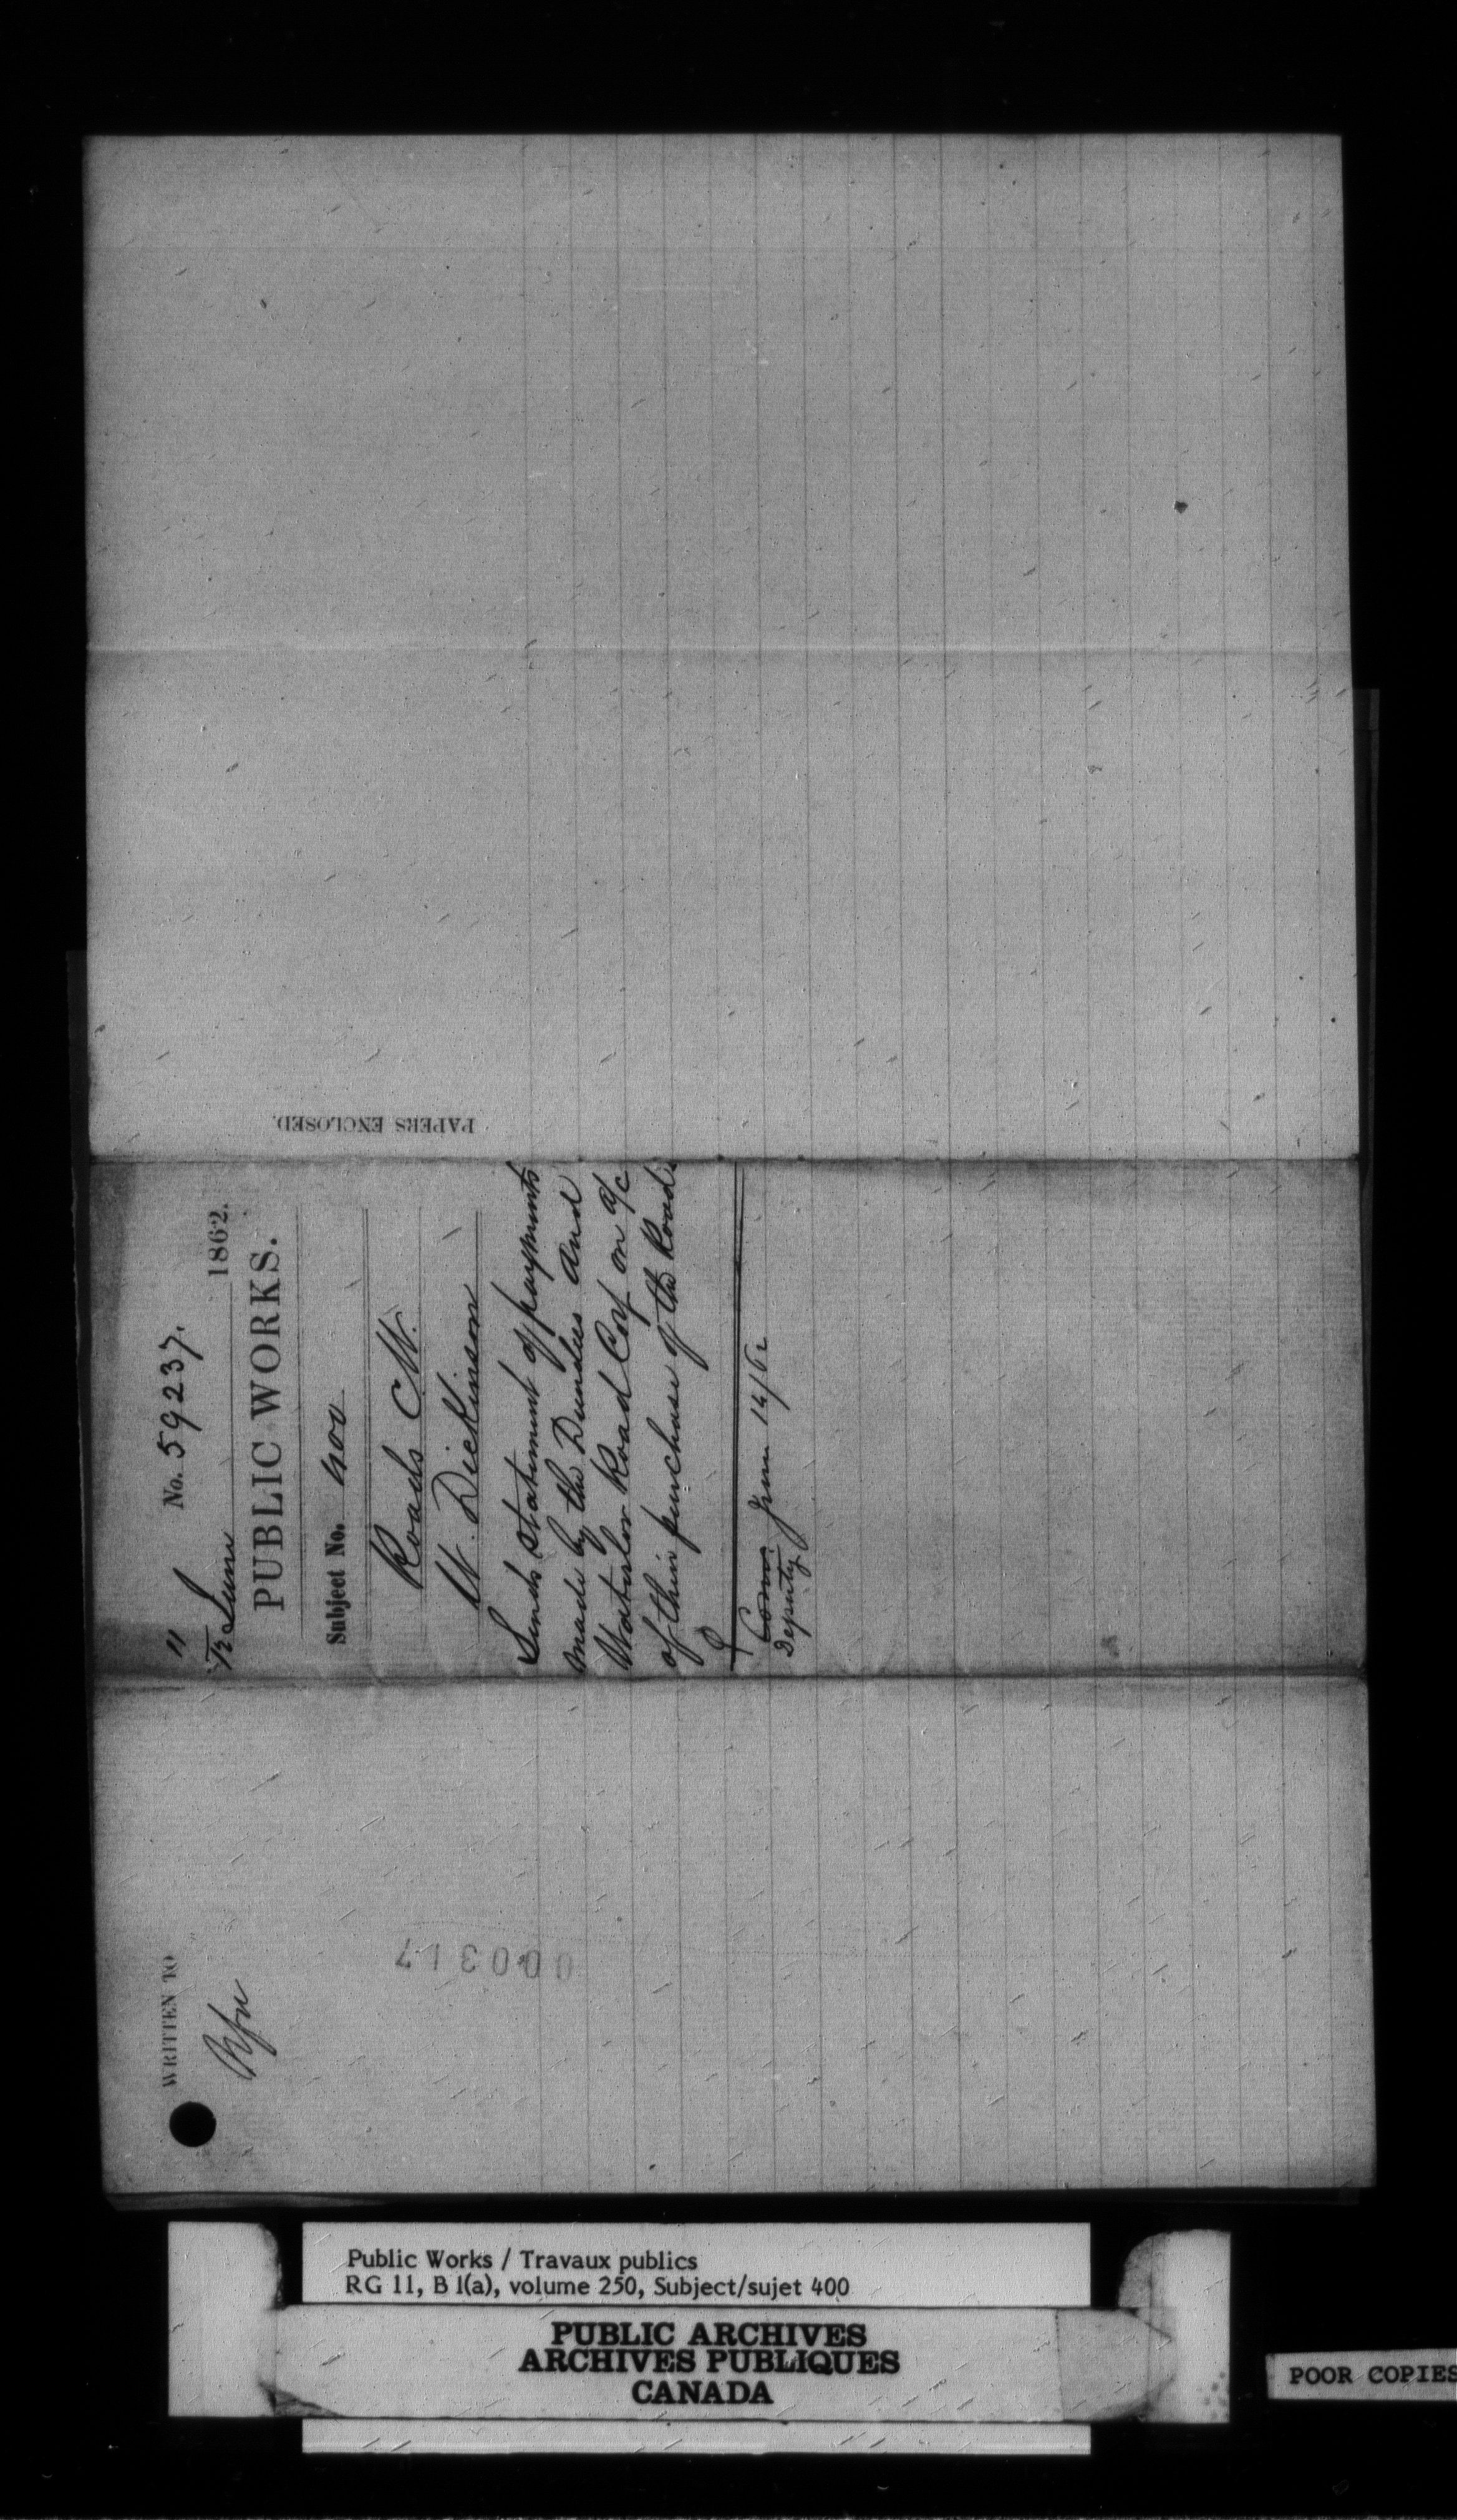 No. 59237.
11
12 June 1862.
PUBLIC WORKS.
Subject No. 400
Roads C.W.
W. Dickinson
Sends statement of payments
made by the Dundas and
Waterloo Road Coy on a/c
of their purchase of the Road
Com.
Deputy June 14/62
PAPERS ENCLOSED.
WRITTEN TO
000317
Public Works / Travaux publics
RG 11, B 1(a), volume 250, Subject/sujet 400
PUBLIC ARCHIVES
ARCHIVES PUBLIQUES
CANADA
POOR COPIES